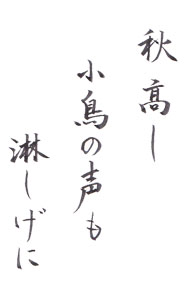 秋高し
小鳥の声も
淋しげに